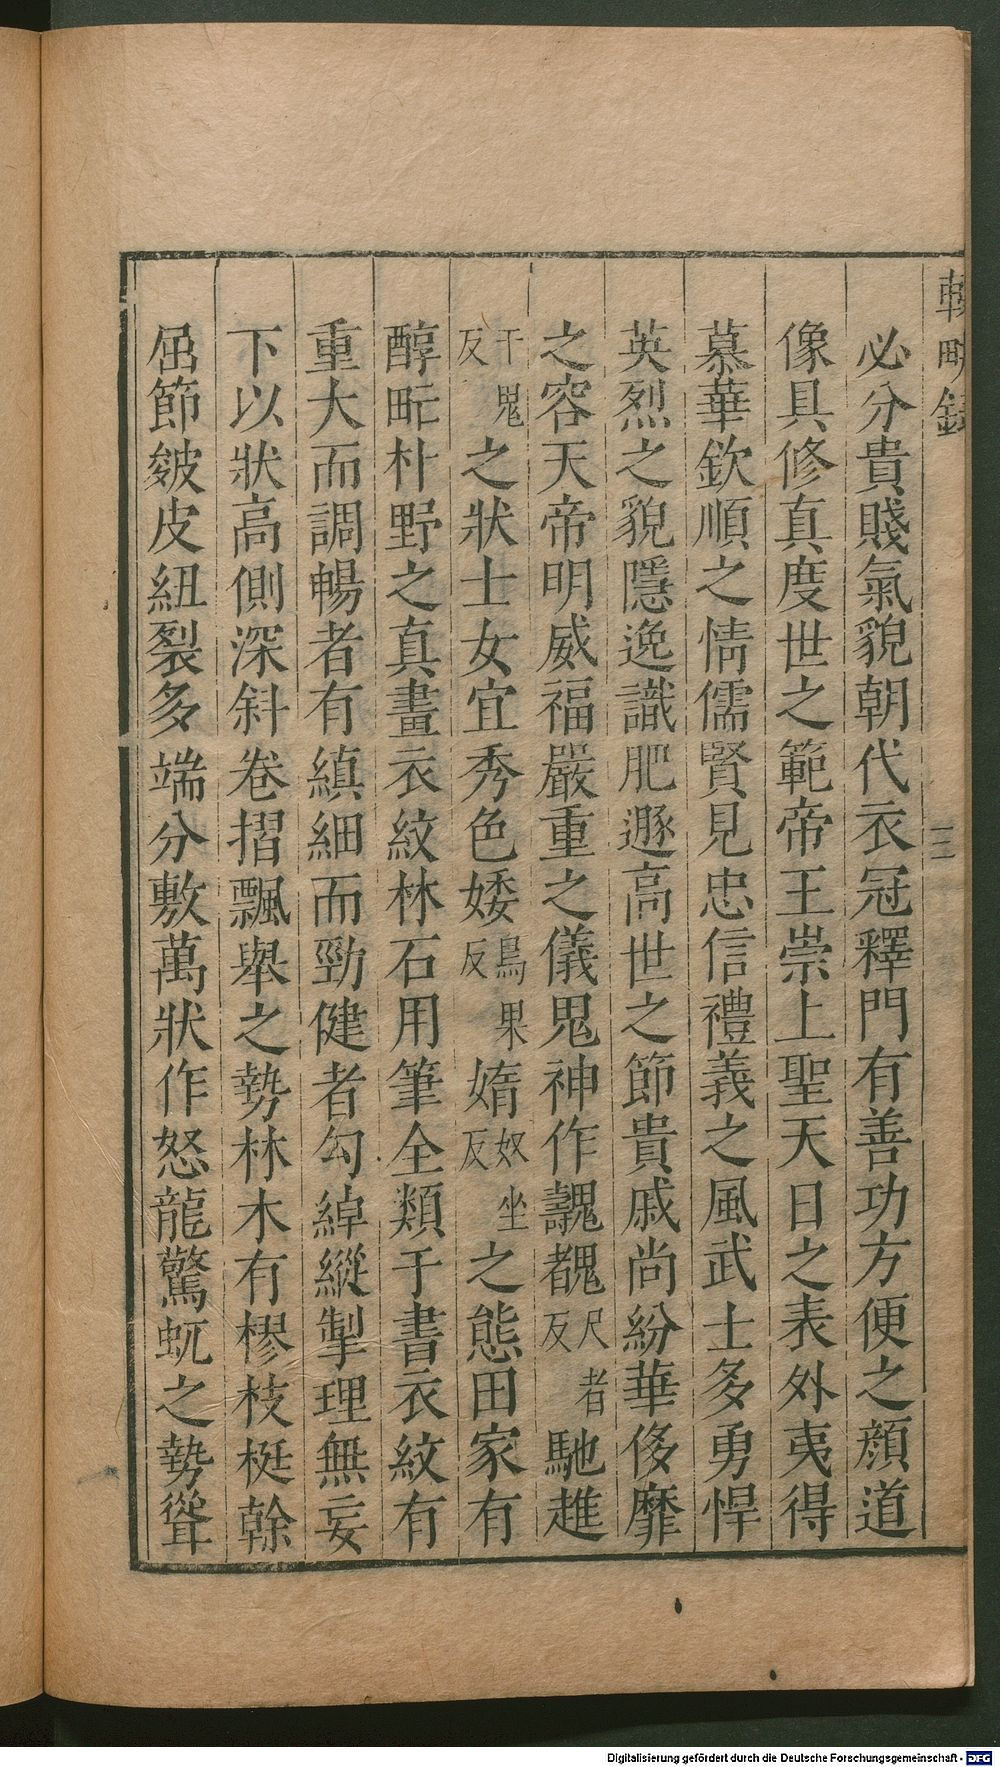 輟畊錄
三
必分貴賤氣貌朝代衣冠釋門有善功方便之顔道
像具修真度世之範帝王崇上聖天日之表外夷得
慕華欽順之情儒賢見忠信禮義之風武士多勇悍
英烈之貌隱逸識肥遯高世之節貴戚尚紛華侈靡
之容天帝明威福嚴重之儀鬼神作䰫䰩尺者反馳趡
于鬼反之狀士女宜秀色婑烏果反媠奴坐反之態田家有
醇甿朴野之真畫衣紋林石用筆全類于書衣紋有
重大而調暢者有縝細而勁健者勾綽縱掣理無妄
下以狀高側深斜卷摺飄舉之勢林木有樛枝梃幹
屈節皴皮紐裂多端分敷萬狀作怒龍驚虬之勢聳
Digitalisierung gefördert durch die Deutsche Forschungsgemeinschaft - DFG